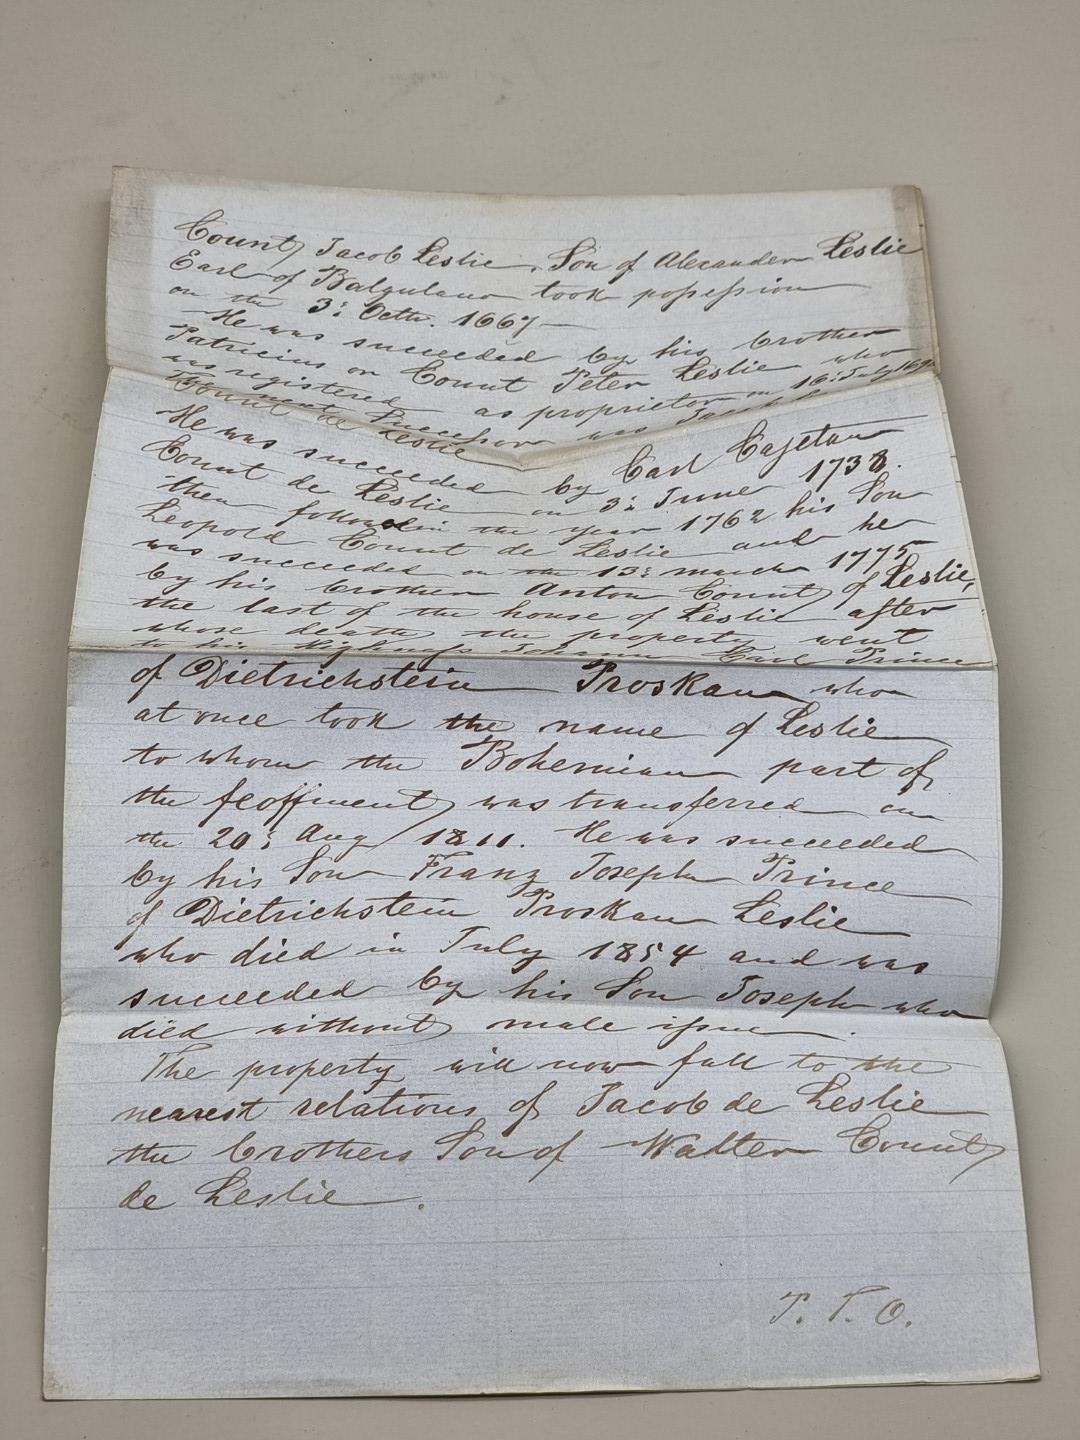 Count Jacob Leslie, Son of Alexander Leslie
Earl of Balquhane took possession
on the 3: Octbr. 1667—
He was succeeded by his brother
Patricius or Count Peter Leslie who
was registered as proprietor on 16: July
Successor was Jacob
Count de Leslie
He was succeeded by Carl Cajetan
Count de Leslie on 3: June 1738.
then followed in the year 1762 his Son
Leopold Count de Leslie and he
was succeeded on the 13: march 1775
by his brother Anton Count of Leslie,
the last of the house of Leslie after
whose death the property went
to his Highness Johann Carl Prince
of Dietrichstein Proskau who
at once took the name of Leslie
to whom the Bohemian part of
the feoffment was transferred on
the 20: Aug 1811. He was succeeded
by his Son Franz Joseph Prince
of Dietrichstein Proskau Leslie
who died in July 1854 and was
succeeded by his Son Joseph who
died without male issue.
The property will now fall to the
nearest relations of Jacob de Leslie
the brothers Son of Walter Count
de Leslie.
P. T. O.